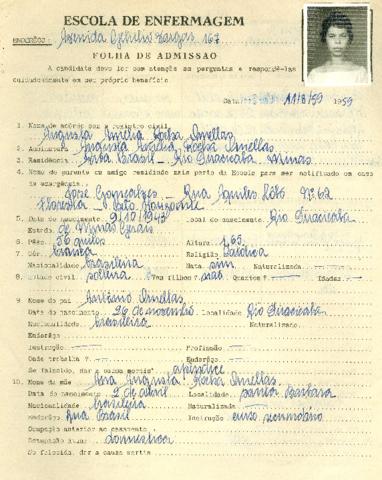 ESCOLA DE ENFERMAGEM
ENDEREÇO: Avenida Getulio Vargas 167
FOLHA DE ADMISSAO
A candidata deve ler com atenção as perguntas e respondê-las
cuidadosamente em seu próprio benefício
Data: 11/8/59 1959
1. Nome de acôrdo com o registro civil
Augusta Amélia Rocha Ornellas
2. Assinatura Augusta Amélia Rocha Ornellas
3. Residência Rua Brasil - Rio Piracicaba Minas
4. Nome do parente ou amigo residindo mais perto da Escola para ser notificado em caso
de emergência. José Gonçalves - Rua N: 62
Floresta - Belo Horizonte
5. Data do nascimento 9/10/1943 Local do nascimento Rio Piracicaba
Estado de Minas Gerais
6. Pêso: 56 quilos Altura: 1,65
7. Côr: branca Religião: Católica
Nacionalidade brasileira Nata sim Naturalizada
8. Estado civil solteira Tem filhos? não Quantos? Idades
9. Nome do pai Ornellas
Data do nascimento 26 de novembro Localidade Rio Piracicaba
Nacionalidade brasileira Naturalizado
Endereço
Instrução Profissão
Onde trabalha? Endereço
Se falecido, dar a causa mortis apêndice
10. Nome da mãe Ana Augusta Rocha Ornellas
Data do nascimento 2 de abril Localidade Santa Bárbara
Nacionalidade brasileira Naturalizada
Endereço Rua Brasil Instrução curso secundário
Ocupação anterior ao casamento
Ocupação atual doméstica
Se falecida, dar a causa mortis